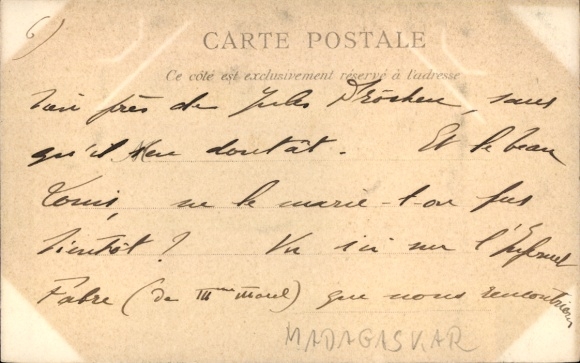 6)
CARTE POSTALE
Ce côté est exclusivement réservé à l'adresse
près de Jules, sans
qu'il s'en doutât. Et le beau
Louis, ne le marie-t-on pas
bientôt? Vu ici sur l'
Fabre (de Mme Morel) que nous rencontrions
MADAGASKAR